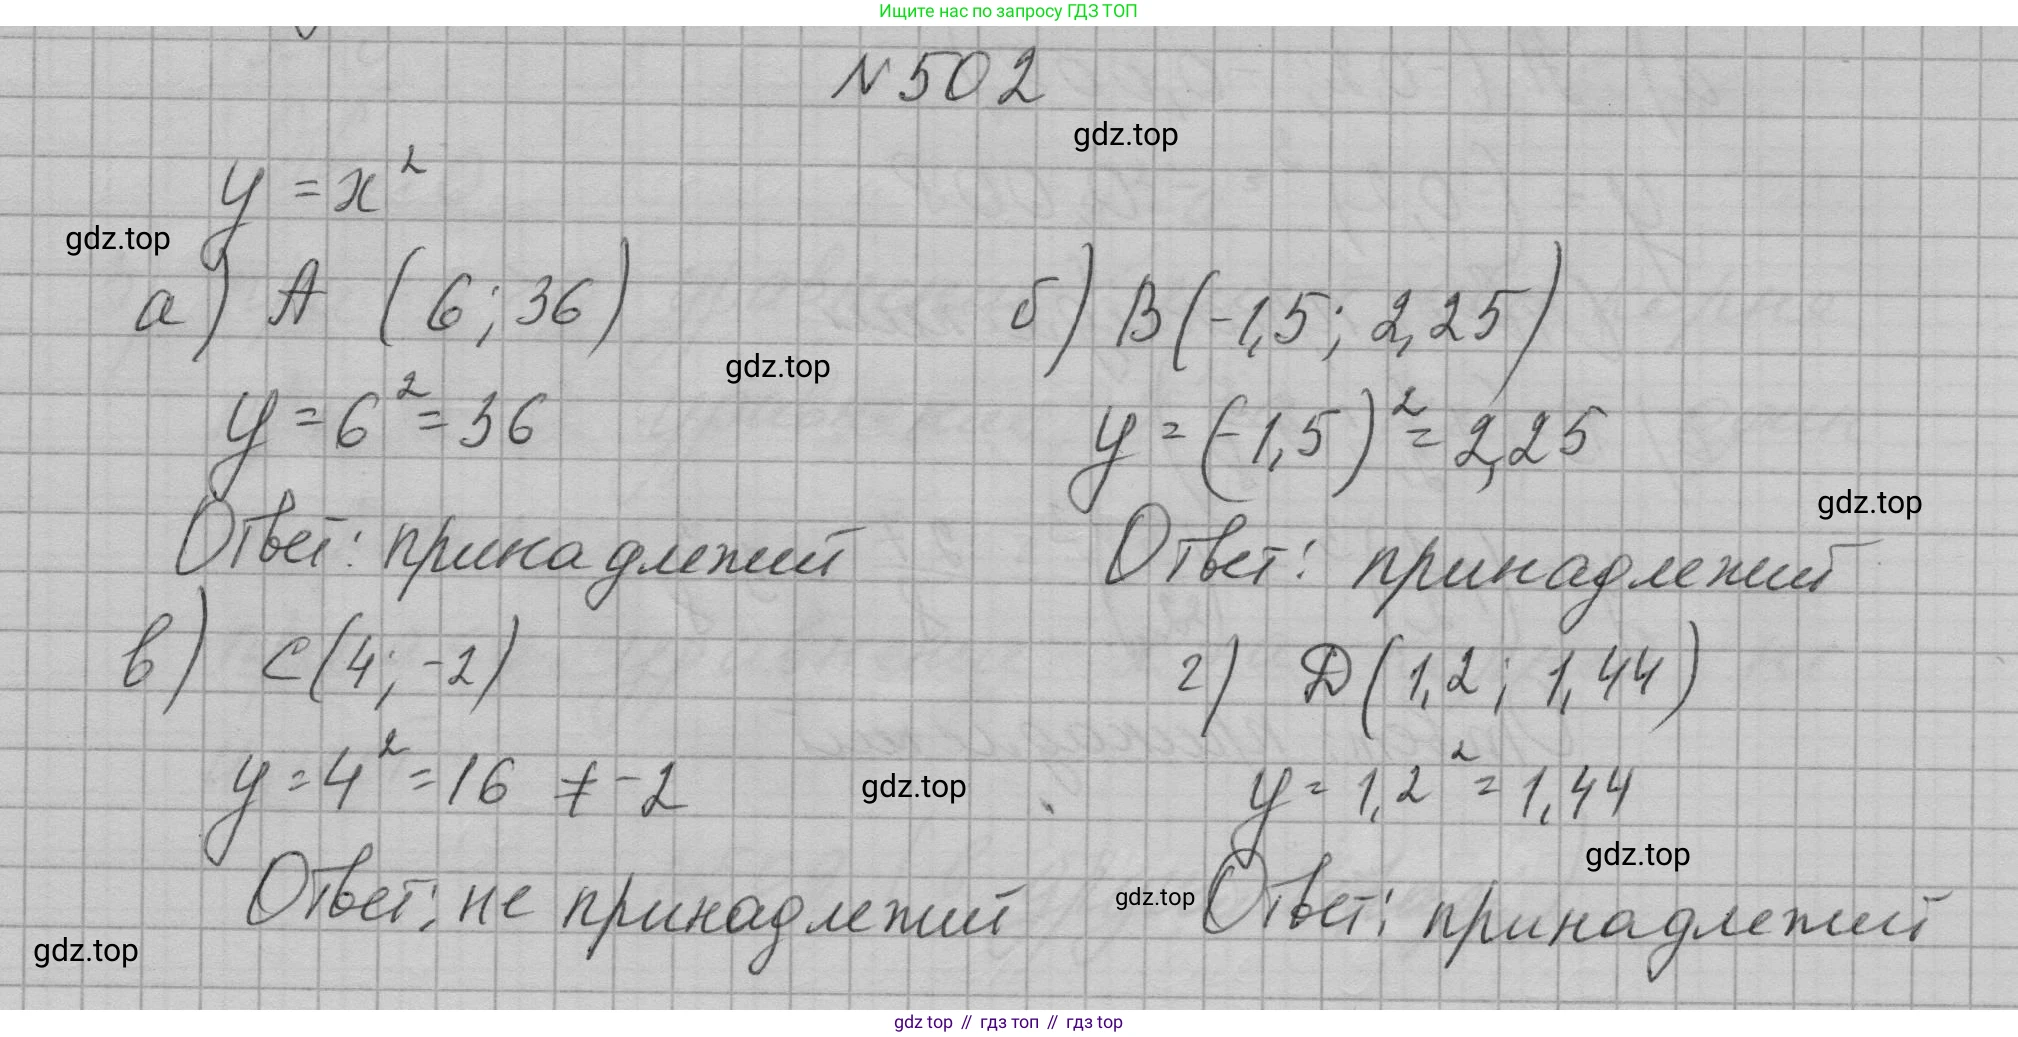 Ищите нас по запросу ГДЗ ТОП
N 502
gdz.top
y = x²
gdz.top
а) A (6; 36)
б) B(-1,5; 2,25)
gdz.top
y = 6² = 36
y = (-1,5)² = 2,25
gdz.top
Ответ: принадлежит
Ответ: принадлежит
в) C(4; -2)
г) D(1,2; 1,44)
y = 4² = 16 ≠ -2
gdz.top
y = 1,2² = 1,44
gdz.top
Ответ: не принадлежит
gdz.top
Ответ: принадлежит
gdz.top
gdz top // гдз топ // гдз top